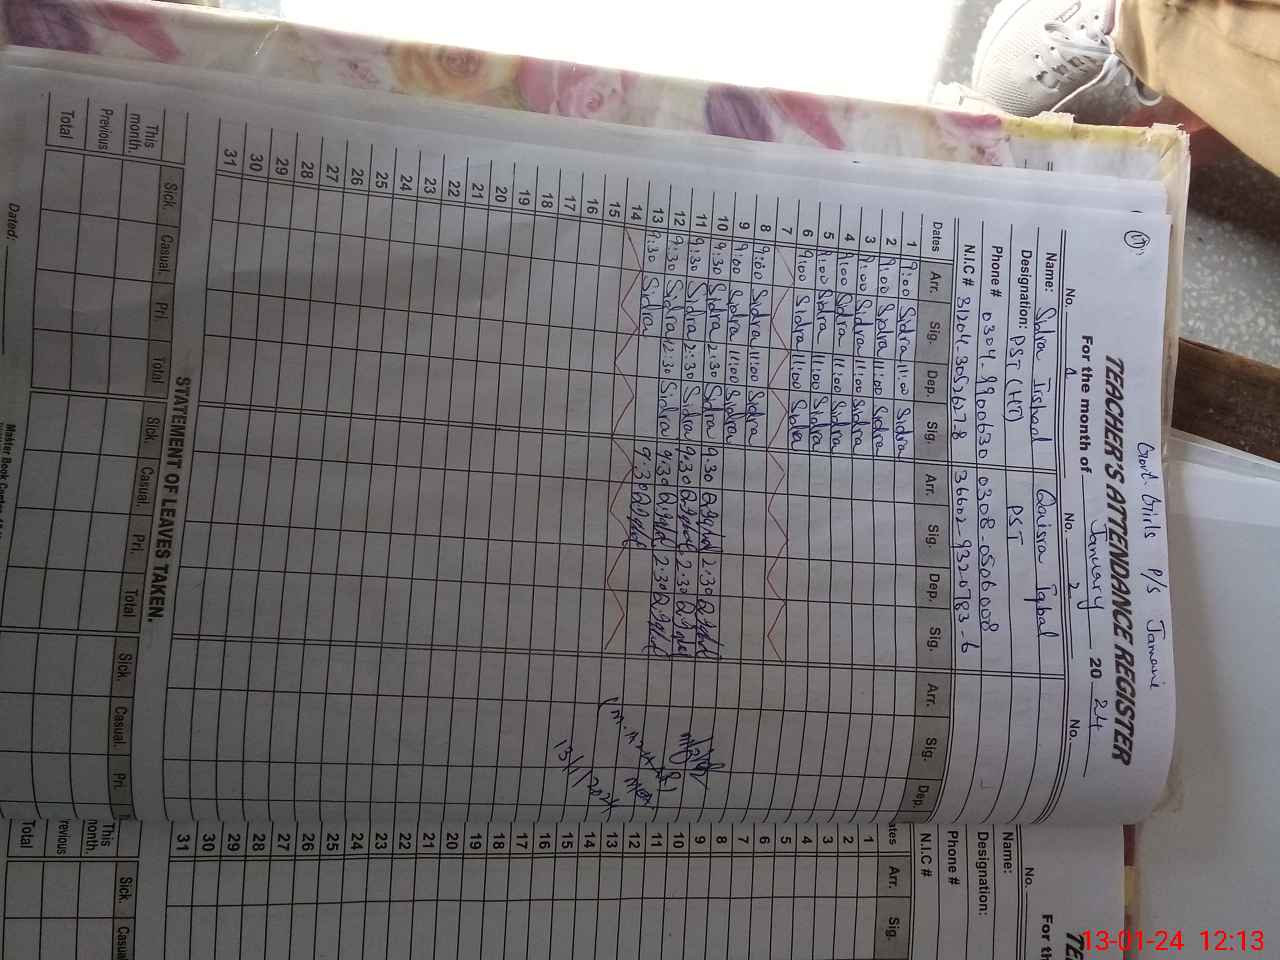 Govt. Girls P/S Jamani
TEACHER'S ATTENDANCE REGISTER
For the month of January 2024
No. 1 No. 2 No.
Name: Sidra Irshad Qaisra Iqbal
Designation: PST (HT) PST
Phone # 0304-9900630 0308-0506008
N.I.C # 31204-3052627-8 36602-9320783-6
Dates Arr. Sig. Dep. Sig. Arr. Sig. Dep. Sig. Arr. Sig. Dep.
1 9:00 Sidra 11:00 Sidra
2 9:00 Sidra 11:00 Sidra
3 9:00 Sidra 11:00 Sidra
4 9:00 Sidra 11:00 Sidra
5 9:00 Sidra 11:00 Sidra
6 9:00 Sidra 11:00 Sidra
7
8 9:00 Sidra 11:00 Sidra
9 9:00 Sidra 11:00 Sidra
10 9:30 Sidra 2:30 Sidra 9.30 2.30
11 9:30 Sidra 2:30 Sidra 9.30 2.30
12 9:30 Sidra 2:30 Sidra 9.30 2.30
13 9:30 Sidra 9.30
14
15
16
17
18
19
20
21
22
23
24
25
26
27
28
29
30
31
13/1/2024
STATEMENT OF LEAVES TAKEN.
Sick. Casual. Pri. Total Sick. Casual. Pri. Total Sick. Casual. Pri.
This month.
Previous
Total
Dated:
No.
Name:
Designation:
Phone #
N.I.C #
Arr. Sig.
1
2
3
4
5
6
7
8
9
10
11
12
13
14
15
16
17
18
19
20
21
22
23
24
25
26
27
28
29
30
31
Sick.
This month.
Total
13-01-24 12:13